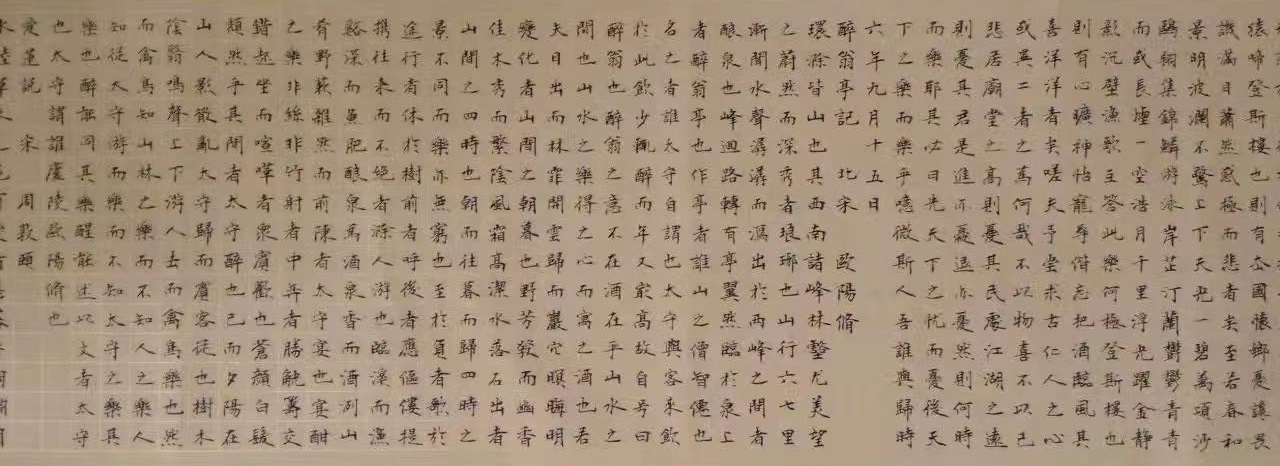 猿啼登斯樓也則有去國懷鄉憂讒畏
譏滿目蕭然感極而悲者矣至若春和
景明波瀾不驚上下天光一碧萬頃沙
鷗翔集錦鱗游泳岸芷汀蘭鬱鬱青青
而或長煙一空浩月千里浮光躍金靜
影沉璧漁歌互答此樂何極登斯樓也
則有心曠神怡寵辱偕忘把酒臨風其
喜洋洋者矣嗟夫予嘗求古仁人之心
或異二者之為何哉不以物喜不以己
悲居廟堂之高則憂其民處江湖之遠
則憂其君是進亦憂退亦憂然則何時
而樂耶其必曰先天下之忧而憂後天
下之樂而樂乎噫微斯人吾誰與歸時
六年九月十五日
醉翁亭記 北宋 歐陽脩
環滁皆山也其西南諸峰林壑尤美望
之蔚然而深秀者琅琊也山行六七里
漸聞水聲潺潺而瀉出於兩峰之間者
釀泉也峰迴路轉有亭翼然臨於泉上
者醉翁亭也作亭者誰山之僧智僊也
名之者誰太守自謂也太守與客來飲
於此飲少輒醉而年又最高故自号曰
醉翁也醉翁之意不在酒在乎山水之
間也山水之樂得之心而寓之酒也若
夫日出而林霏開雲歸而巖穴暝晦明
變化者山間之朝暮也野芳發而幽香
佳木秀而繁陰風霜高潔水落石出者
山間之四時也朝而往暮而歸四時之
景不同而樂亦無窮也至於負者歌於
途行者休於樹前者呼後者應傴僂提
携往來而不絕者滁人游也臨溪而漁
谿深而魚肥釀泉為酒泉香而酒洌山
肴野蔌雜然而前陳者太守宴也宴酣
之樂非絲非竹射者中弈者勝觥籌交
錯起坐而喧嘩者眾賓歡也蒼顏白髮
頹然乎其間者太守醉也已而夕陽在
山人影散亂太守歸而賓客從也樹木
陰翳鳴聲上下游人去而禽鳥樂也然
而禽鳥知山林之樂而不知人之樂人
知從太守游而樂而不知太守之樂其
樂也醉能同其樂醒能述以文者太守
也太守謂誰廬陵歐陽脩也
愛蓮說 宋 周敦頤